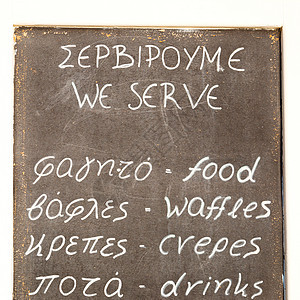 ΣΕΡΒΙΡΟΥΜΕ
WE SERVE
φαγητό - food
βάφλες - waffles
κρέπες - crepes
ποτά - drinks